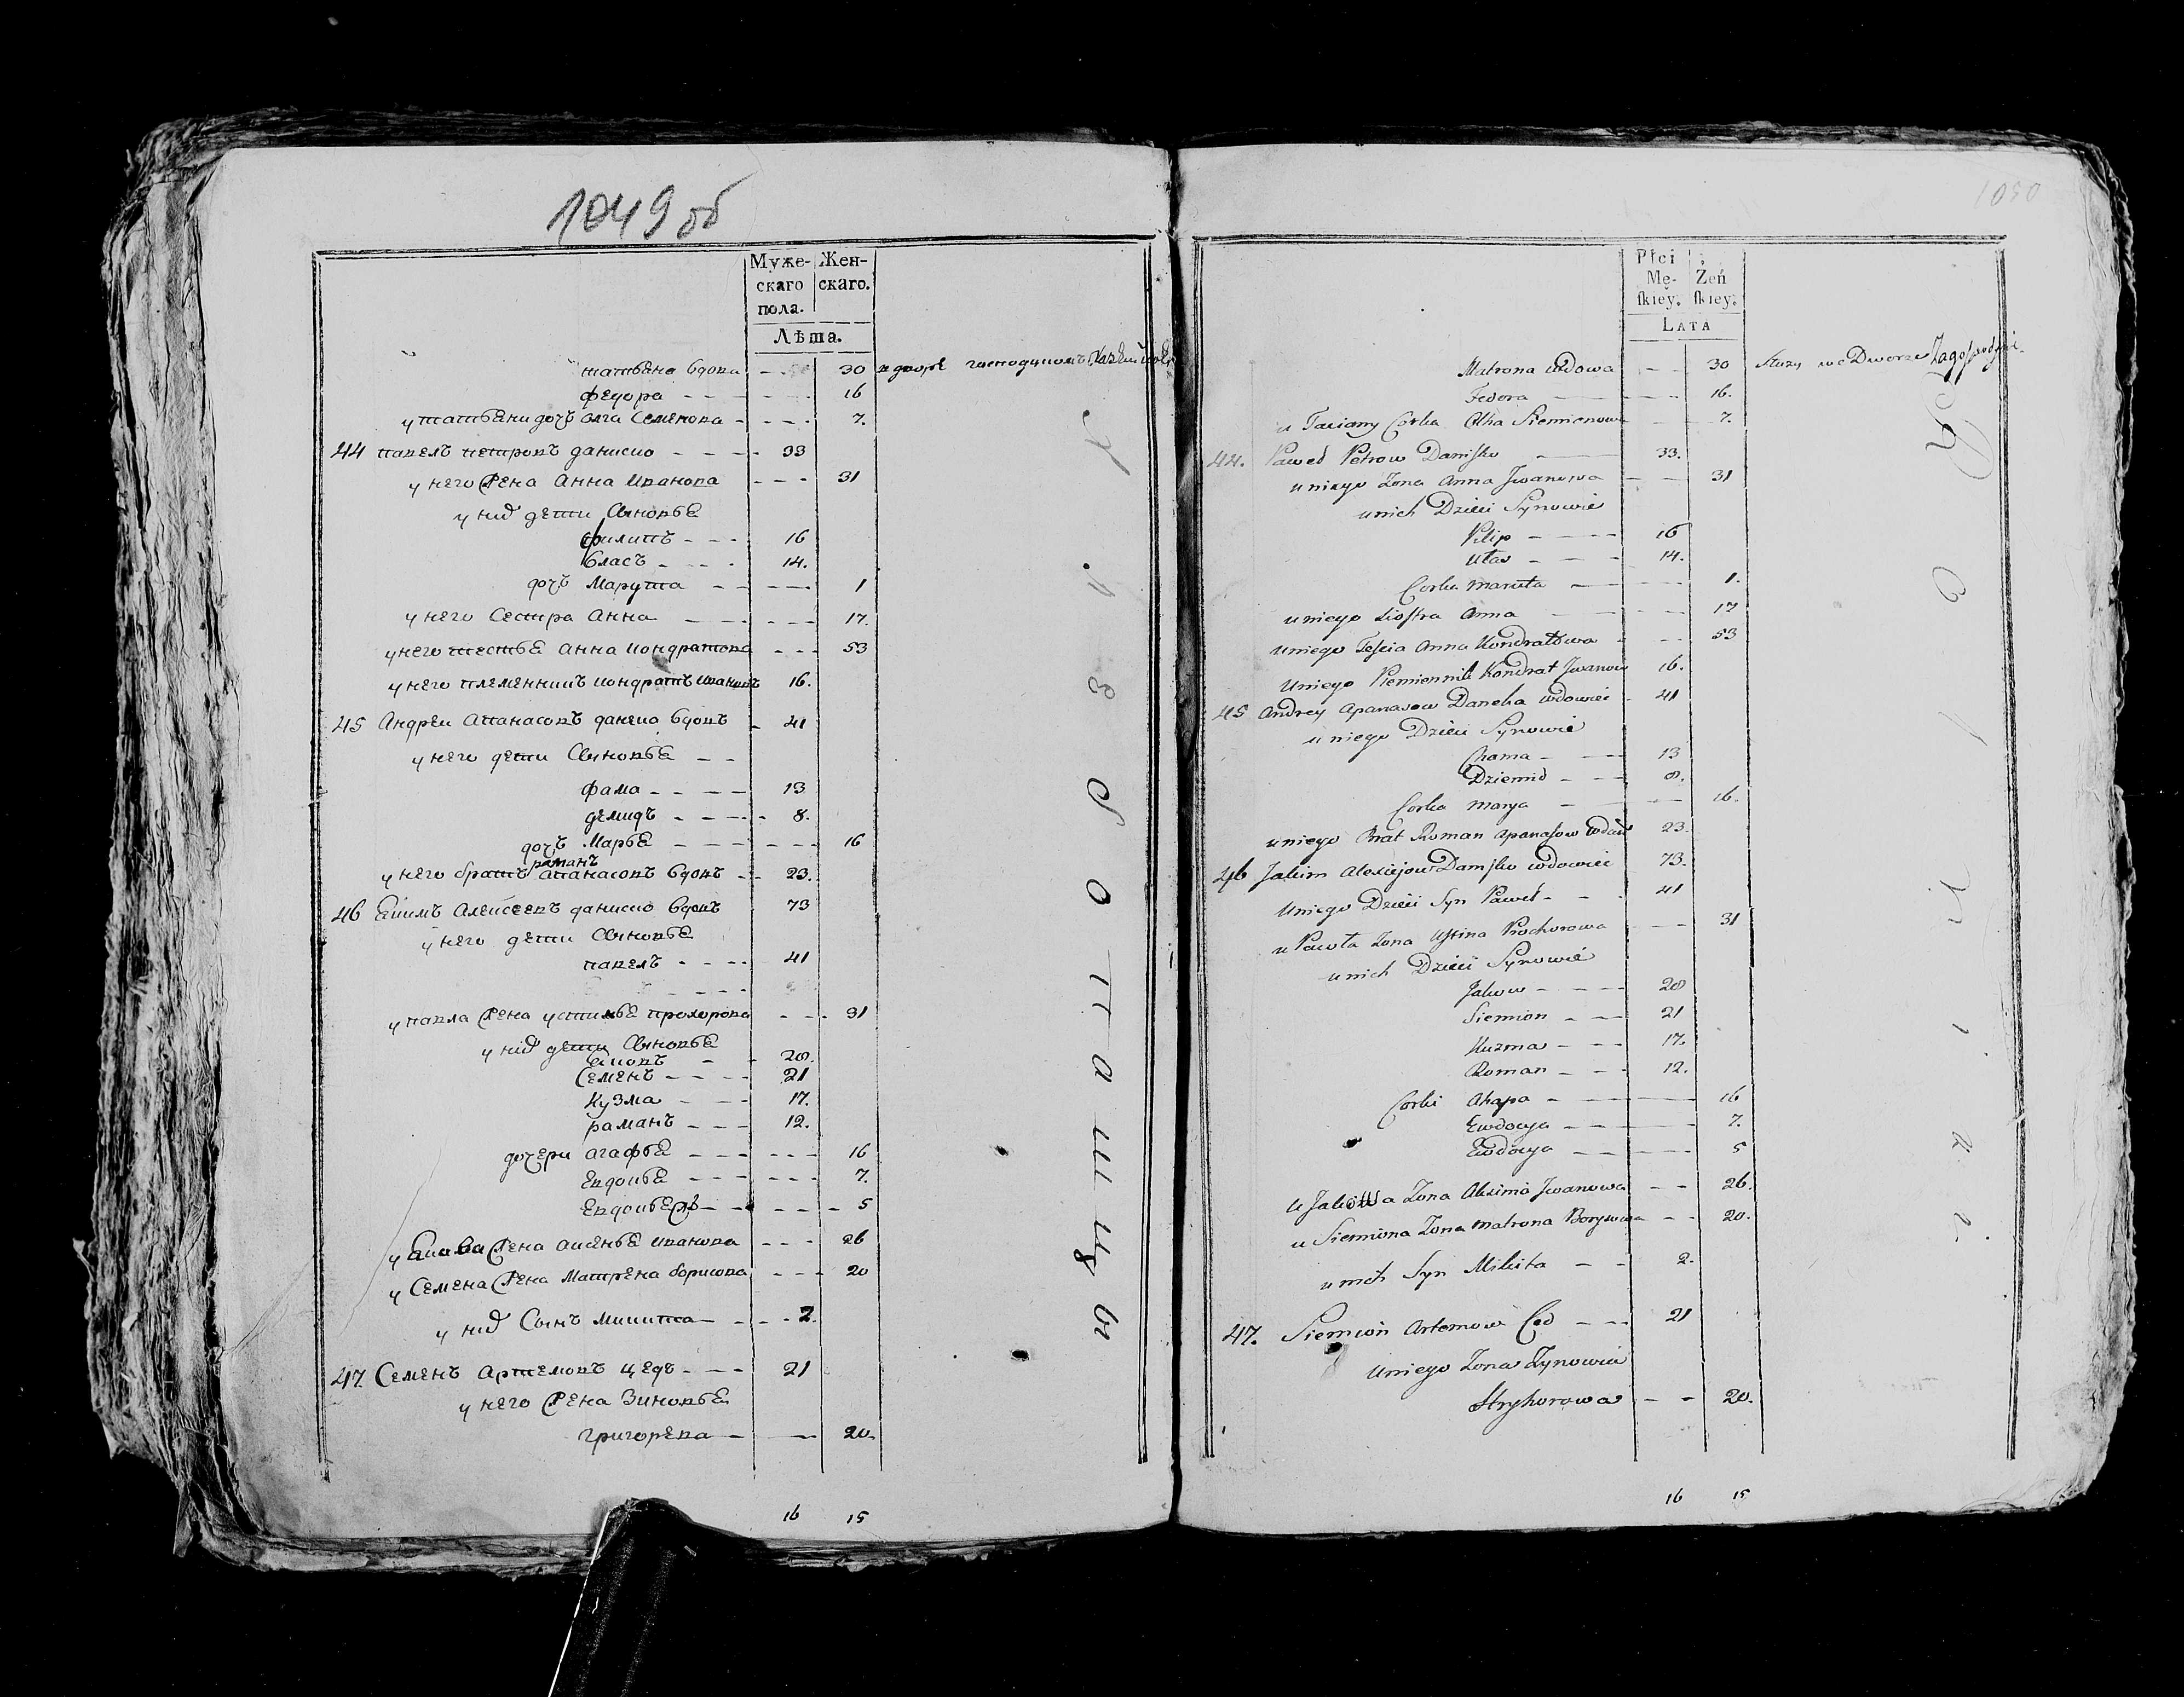 1049 об
Муже-
скаго
пола.
Жен-
скаго.
Лѣта.
татьяна вдова 30
федора 16
у татьяни дочъ олга Семенова 7.
44 павелъ петровъ данисио 33
у него жена Анна Иванова 31
у них дети Сыновья
филипъ 16
власъ 14.
дочъ Марута 1
у него Сестра Анна 17.
у него тестья Анна кондратова 53
у него племенникъ кондратъ Ивановъ 16.
45 Андреи Апанасовъ вдовъ 41
у него дети Сыновья
фама 13
демидъ 8.
дочъ Марья 16
раманъ
у него братъ апанасовъ вдовъ 23.
46 Якимъ Алексеевъ данисио вдовъ 73
у него дети Сыновья
павелъ 41
у павла жена устинья прохорова 31
у них дети Сыновья
Яковъ 28.
Семенъ 21
Кузма 17.
раманъ 12.
дочери агафья 16
Евдокья 7.
5
у Якова жена аксенья иванова 26
у Семена жена Матрена борисова 20
у них Сынъ микита 2.
47. Семенъ Артемовъ цедъ 21
у него жена Зиновья
григорева 20.
16 15
1050
Płci
Mę-
ſkiey.
Żeń
ſkiey.
Lata
Matrona wdowa 30 we Dworze
Fedora 16.
u Taciany Corka Olka Siemionowa 7.
44. Paweł Petrow Daniſko 33.
u niego Zona Anna Jwanowa 31
u nich Dzieci Synowie
Pilip 16
Ułas 14.
Corka Maruta 1.
u niego Siostra Anna 17
u niego Teſcia Anna Kondratowa 53
u niego Plemiennik Kondrat Jwanow 16.
45 Andrey Apanasow wdowiec 41
u niego Dzieci Synowie
Chama 13
Dziemid 8.
Corka Marya 16.
u niego Brat Roman Apanaſow 23.
46 Jakim Alexiejow Daniſko wdowiec 73.
u niego Dzieci Syn Paweł 41
u Pawła Zona Uſtina Prochorowa 31
u nich Dzieci Synowie
Jakow 28
Siemion 21
Kuzma 17.
Roman 12.
Corki Ahapa 16
Ewdocya 7.
Ewdocya 5
u Jakowa Zona Jwanowa 26.
u Siemiona Zona Matrona 20.
u nich Syn Mikita 2.
47. Siemion Artemow Ced 21
u niego Zona Zynowia
Hryhorowa 20.
16 15